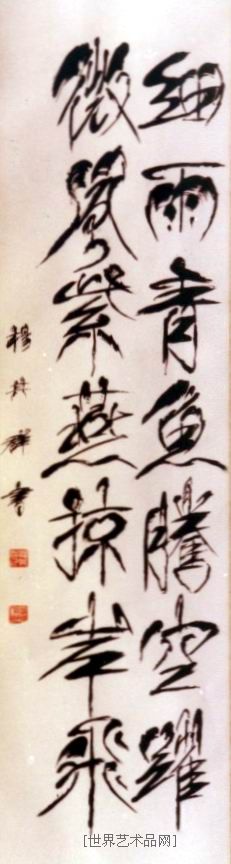 细雨青鱼腾空跃
微风紫燕掠岸飞
杨其群书
[世界艺术品网]